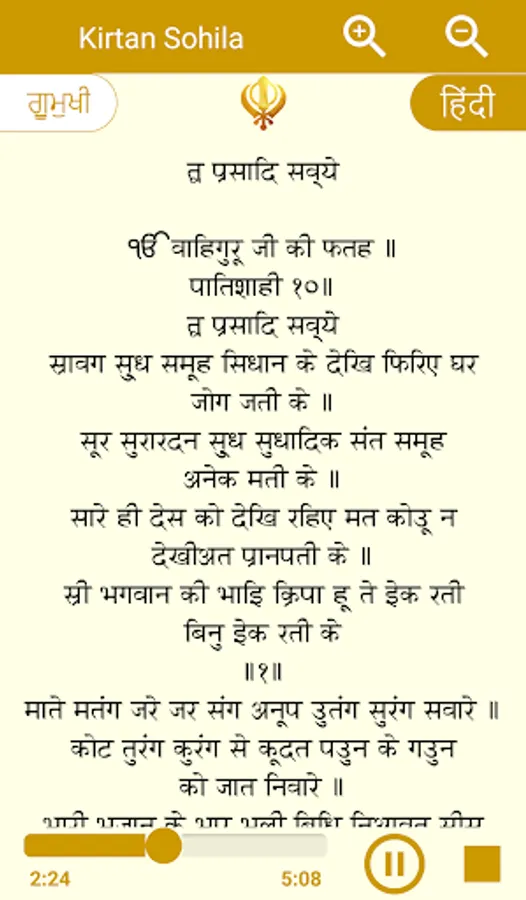 Kirtan Sohila
ਗੁਰੂਮੁਖੀ
हिंदी
त्व प्रसादि सव्ये
ੴ वाहिगुरू जी की फतह ॥
पातिशाही १०॥
त्व प्रसादि सव्ये
स्रावग सु्ध समूह सिधान के देखि फिरिए घर
जोग जती के ॥
सूर सुरारदन सु्ध सुधादिक संत समूह
अनेक मती के ॥
सारे ही देस को देखि रहिए मत कोउू न
देखीअत प्रानपती के ॥
स्री भगवान की भाइि क्रिपा हू ते इेक रती
बिनु इेक रती के
॥१॥
माते मतंग जरे जर संग अनूप उुतंग सुरंग सवारे ॥
कोट तुरंग कुरंग से कूदत पउुन के गउुन
को जात निवारे ॥
2:24
5:08